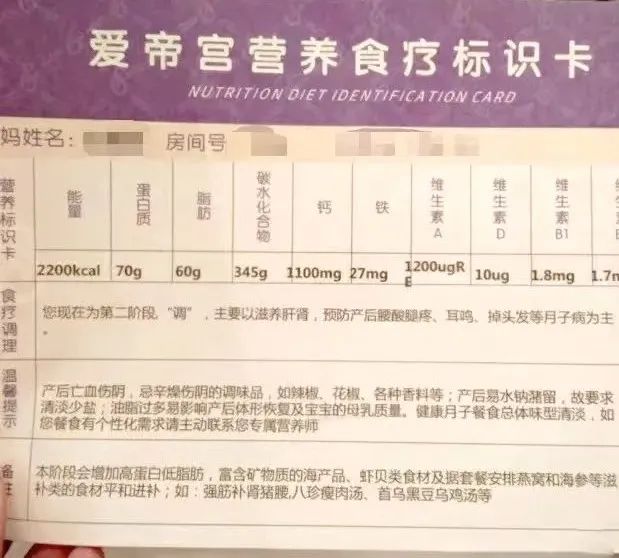 爱帝宫营养食疗标识卡
NUTRITION DIET IDENTIFICATION CARD
妈姓名: 房间号
营养标识卡 能量 蛋白质 脂肪 碳水化合物 钙 铁 维生素A 维生素D 维生素B1
2200kcal 70g 60g 345g 1100mg 27mg 1200ugRE 10ug 1.8mg 1.7m
食疗调理
您现在为第二阶段,“调”,主要以滋养肝肾,预防产后腰酸腿疼、耳鸣、掉头发等月子病为主
。
温馨提示
产后亡血伤阴,忌辛燥伤阴的调味品,如辣椒、花椒、各种香料等;产后易水钠潴留,故要求
清淡少盐;油脂过多易影响产后体形恢复及宝宝的母乳质量。健康月子餐食总体味型清淡,如
您餐食有个性化需求请主动联系您专属营养师
备注
本阶段会增加高蛋白低脂肪,富含矿物质的海产品、虾贝类食材及据套餐安排燕窝和海参等滋
补类的食材平和进补;如:强筋补肾猪腰,八珍瘦肉汤、首乌黑豆乌鸡汤等